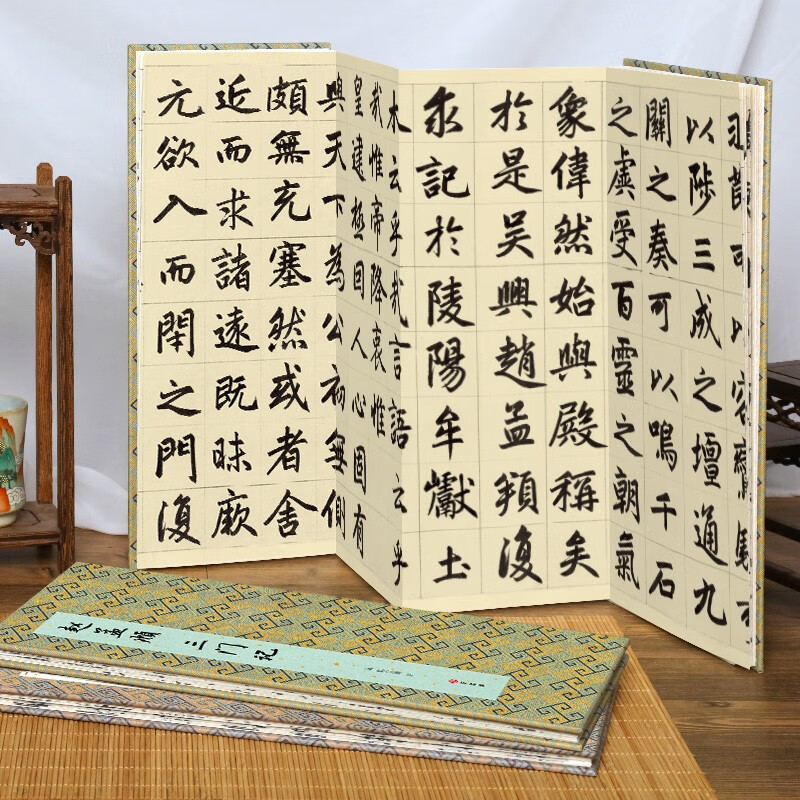 可以容
以陟三成之壇通九
關之奏可以鳴千石
之虡受百靈之朝氣
象偉然始與殿稱矣
於是吴興趙孟頫復
求記於陵陽牟巘土
木云乎哉言語云乎
哉惟帝降衷惟
皇建極因人心固有
與天下為公初無側
頗無充塞然或者舍
近而求諸遠既昧厥
元欲入而閉之門復
赵孟頫 三门记